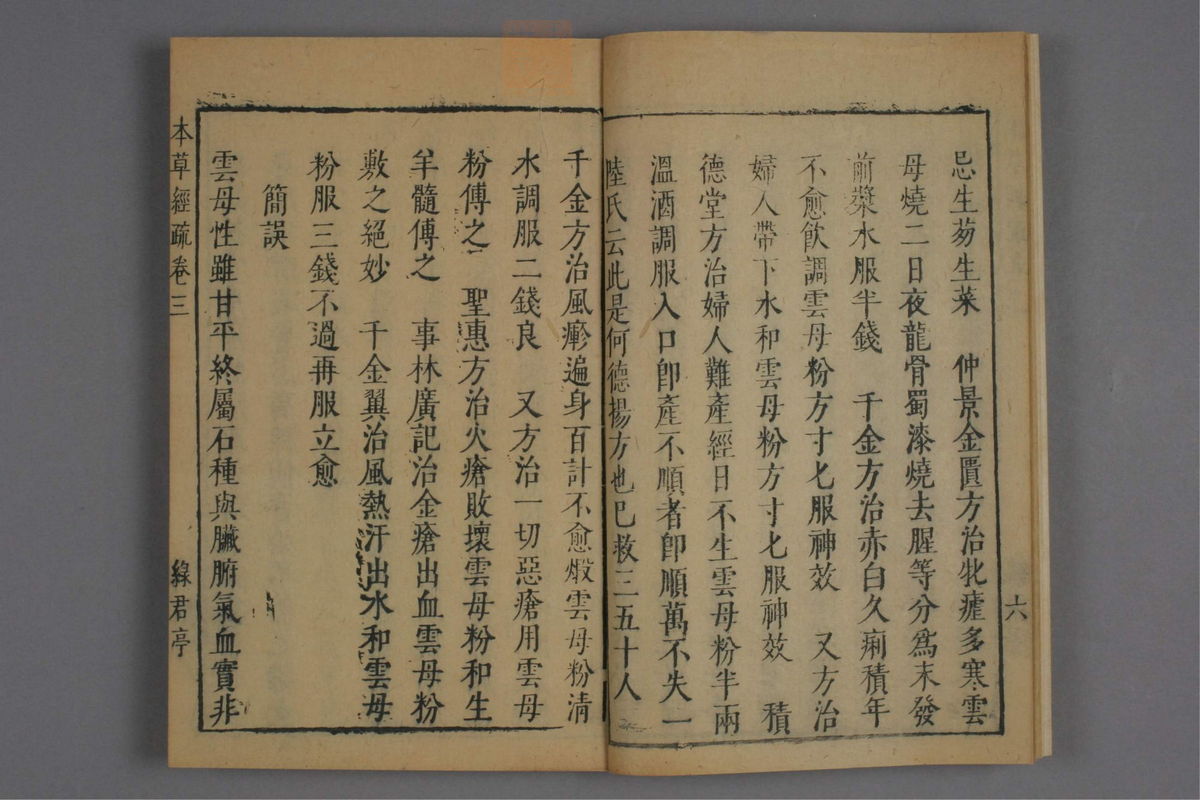 忌生葱生菜　仲景金匱方治牝瘧多寒雲
母燒二日夜龍骨蜀漆燒去腥等分爲末發
前漿水服半錢　千金方治赤白久痢積年
不愈飲調雲母粉方寸匕服神效　又方治
婦人帶下水和雲母粉方寸匕服神效　積
德堂方治婦人難產經日不生雲母粉半兩
溫酒調服入口卽產不順者卽順萬不失一
陸氏云此是何德揚方也已救三五十人
六
千金方治風㾭遍身百計不愈煅雲母粉清
水調服二錢良　又方治一切惡瘡用雲母
粉傅之　聖惠方治火瘡敗壞雲母粉和生
羊髓傅之　事林廣記治金瘡出血雲母粉
敷之絕妙　千金翼治風熱汗出水和雲母
粉服三錢不過再服立愈
簡誤
雲母性雖甘平終屬石種與臟腑氣血實非
本草經疏卷三　綠君亭